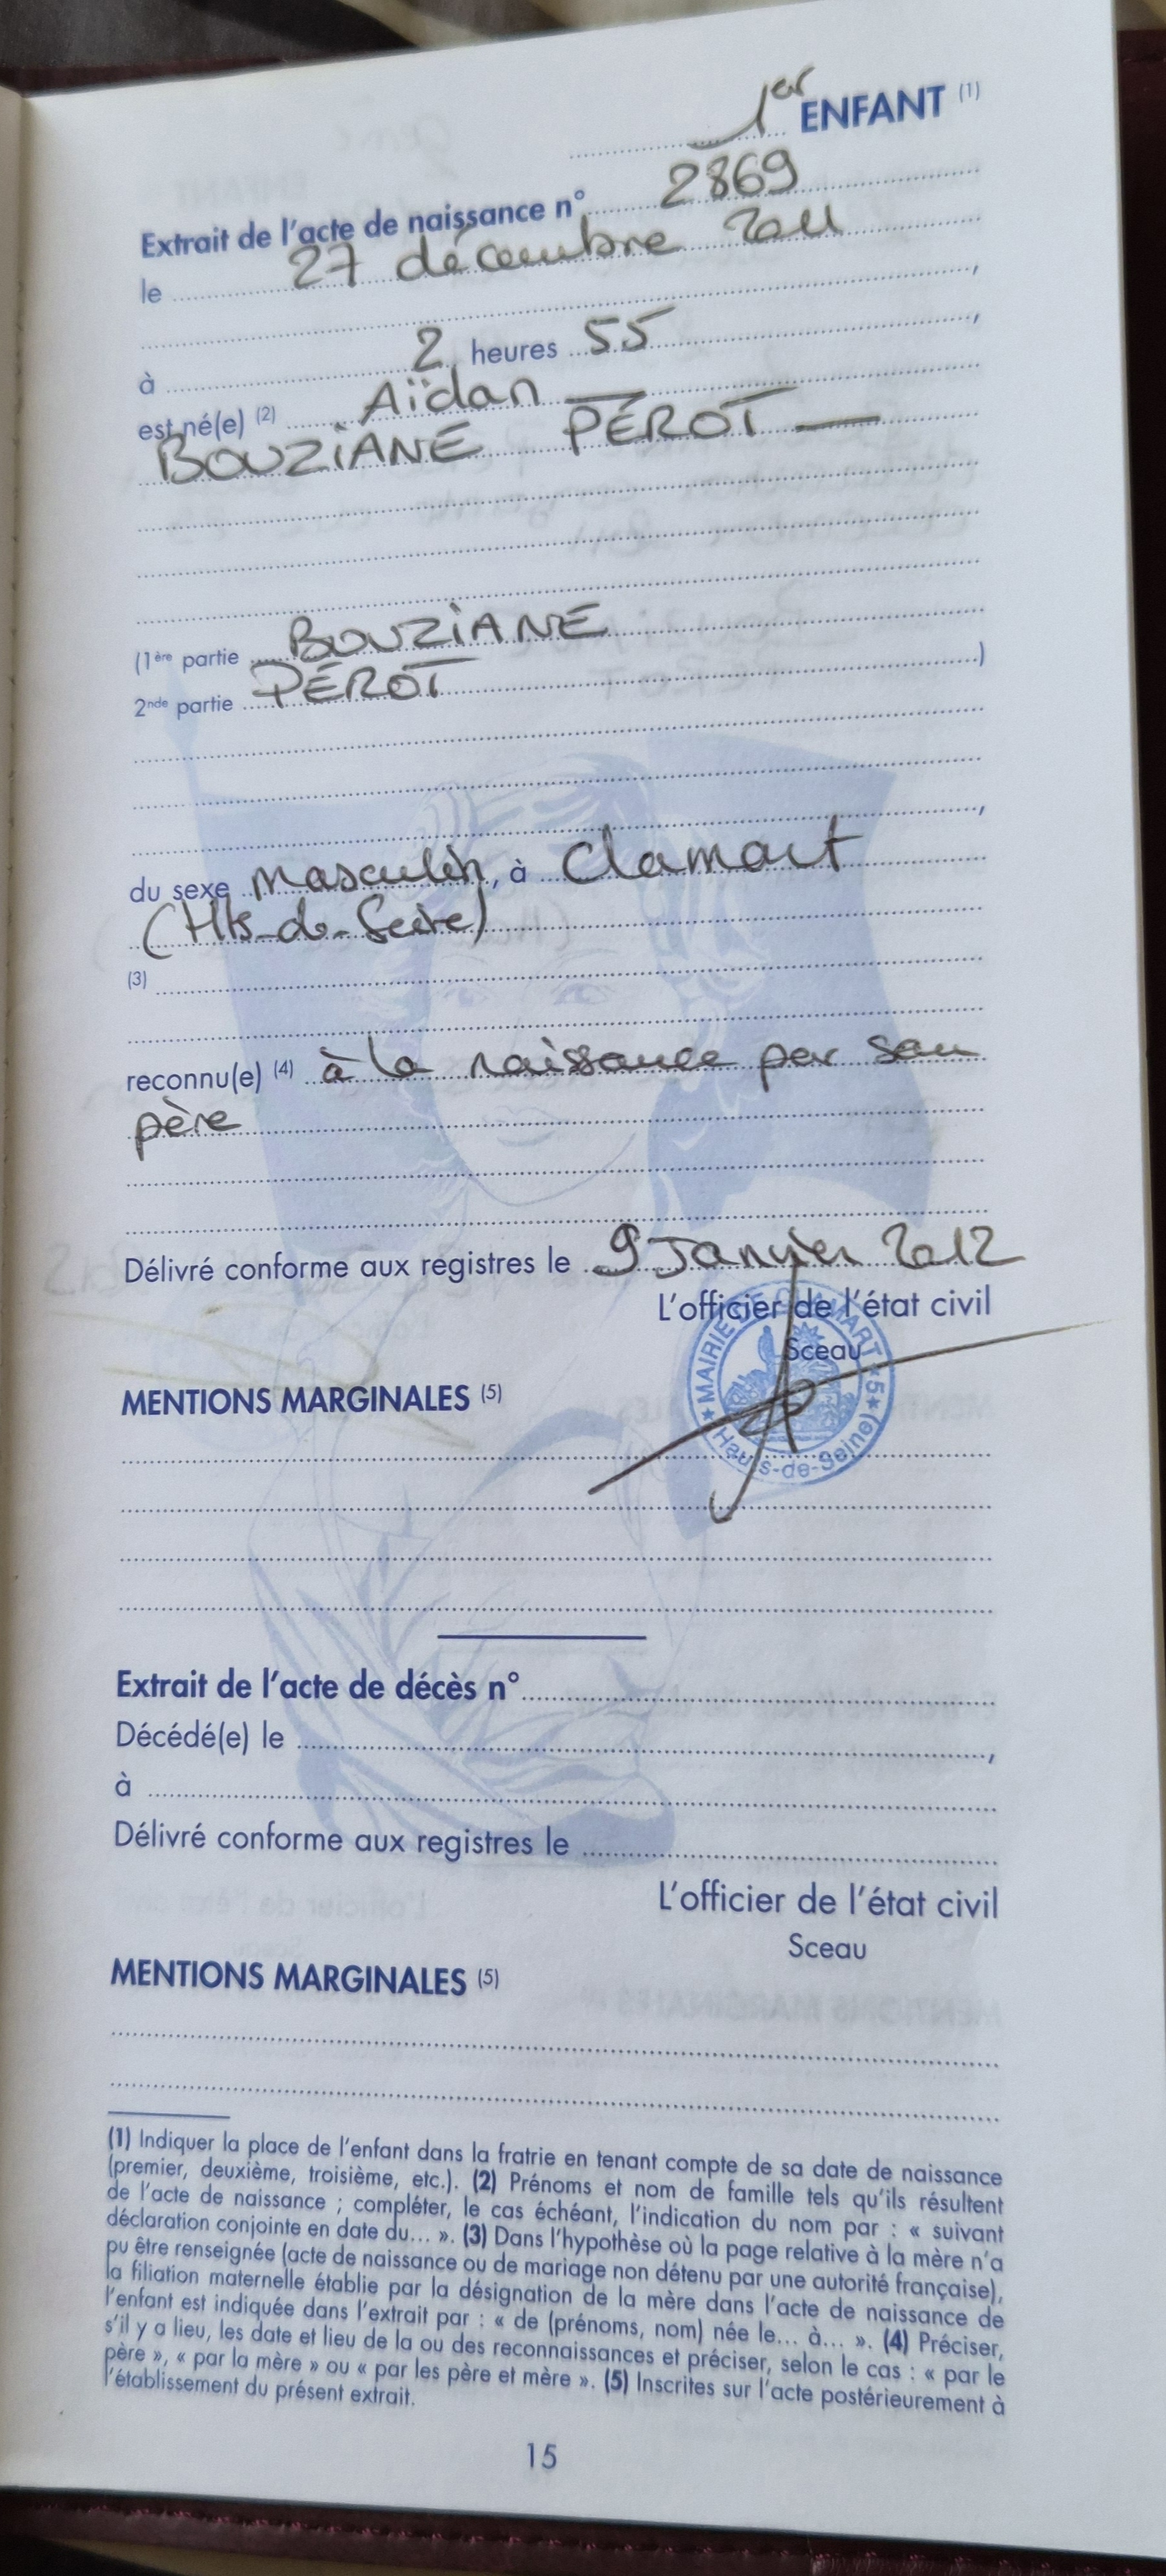 1er ENFANT (1)
Extrait de l'acte de naissance n° 2869
le 27 décembre 2011
,
à 2 heures 55 ,
est né(e) (2) Aïdan
BOUZIANE PÉROT
(1ère partie BOUZIANE
2nde partie PÉROT )
,
du sexe masculin, à Clamart
(Hts-de-Seine)
(3)
reconnu(e) (4) à la naissance par son
père
Délivré conforme aux registres le 9 Janvier 2012
L'officier de l'état civil
Sceau
MAIRIE DE CLAMART ★ 5 ★ (Hauts-de-Seine) ★
MENTIONS MARGINALES (5)
Extrait de l'acte de décès n°
Décédé(e) le ,
à
Délivré conforme aux registres le
L'officier de l'état civil
Sceau
MENTIONS MARGINALES (5)
(1) Indiquer la place de l'enfant dans la fratrie en tenant compte de sa date de naissance
(premier, deuxième, troisième, etc.). (2) Prénoms et nom de famille tels qu'ils résultent
de l'acte de naissance ; compléter, le cas échéant, l'indication du nom par : « suivant
déclaration conjointe en date du... ». (3) Dans l'hypothèse où la page relative à la mère n'a
pu être renseignée (acte de naissance ou de mariage non détenu par une autorité française),
la filiation maternelle établie par la désignation de la mère dans l'acte de naissance de
l'enfant est indiquée dans l'extrait par : « de (prénoms, nom) née le... à... ». (4) Préciser,
s'il y a lieu, les date et lieu de la ou des reconnaissances et préciser, selon le cas : « par le
père », « par la mère » ou « par les père et mère ». (5) Inscrites sur l'acte postérieurement à
l'établissement du présent extrait.
15